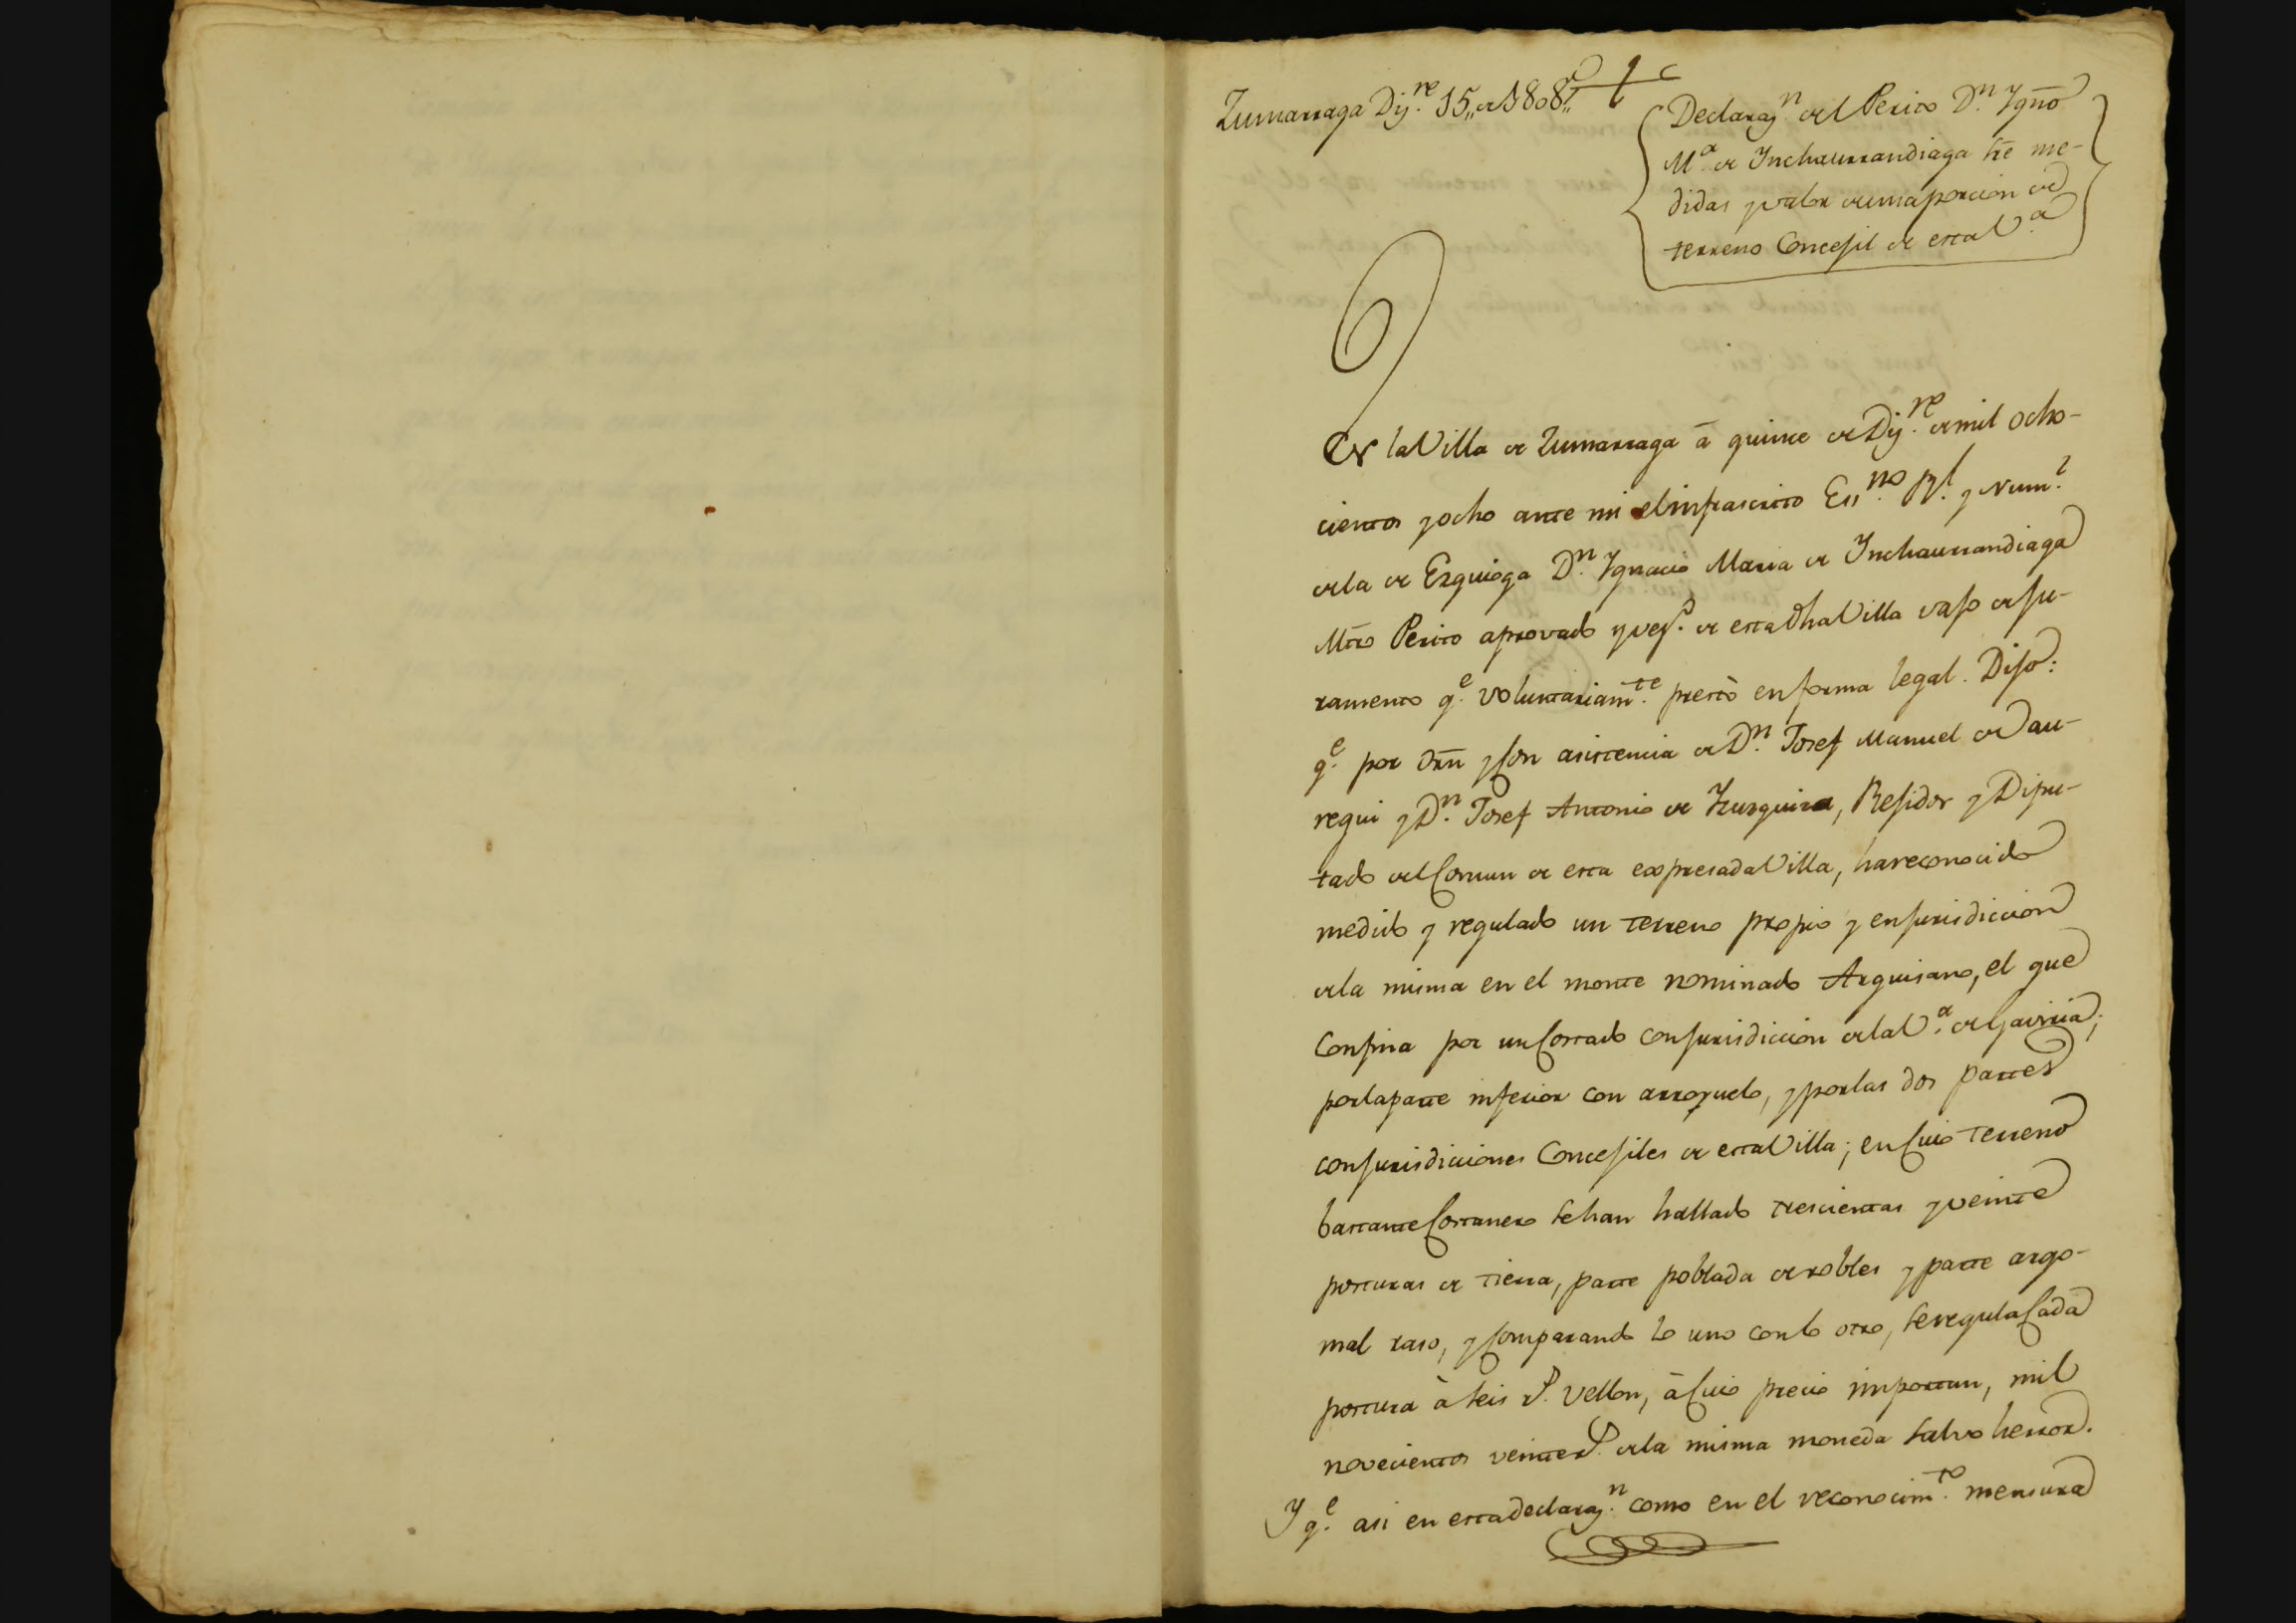 Zumarraga Dij.re 15,, de 1808,,
Declaraz.n del Perito D.n Ygn̄o
M.a de Inchaurrandiaga sr̄e me-
didas y valor de una porcion de
terreno Concejil de esta V.a
En la Villa de Zumarraga à quince de Dij.re de mil ocho-
cientos y ocho ante mi el infrascrito Ess.no R.l y Num.l
de la de Ezquioga D.n Ygnacio Maria de Inchaurrandiaga
Mr̄o Perito aprovado y vez.o de esta dha Villa vajo de ju-
ramento q.e voluntariam.te prestò en forma legal. Dijo:
q.e por orn̄ y con asistencia de D.n Josef Manuel de Jau-
regui y D.n Josef Antonio de Yzuzquiza, Rejidor y Dipu-
tado del Comun de esta expresada Villa, ha reconocido
medido y regulado un terreno propio y en jurisdiccion
de la misma en el monte nominado Arguisano, el que
Confina por un Costado con jurisdiccion de la V.a de Gaviria;
por la parte inferior con arroyuelo, y por las dos partes
con jurisdiciones Concejiles de esta Villa; en Cuio terreno
bastante Costanero se han hallado trescientas y veinte
posturas de tierra, parte poblada de robles y parte argo-
mal raso, y Comparando lo uno con lo otro, se regula Cada
postura à seis r.s vellon, à Cuio precio importan, mil
novecientos veinte r.s de la misma moneda salvo herror.
Y q.e asi en esta declaraz.n como en el reconocim.to mensura